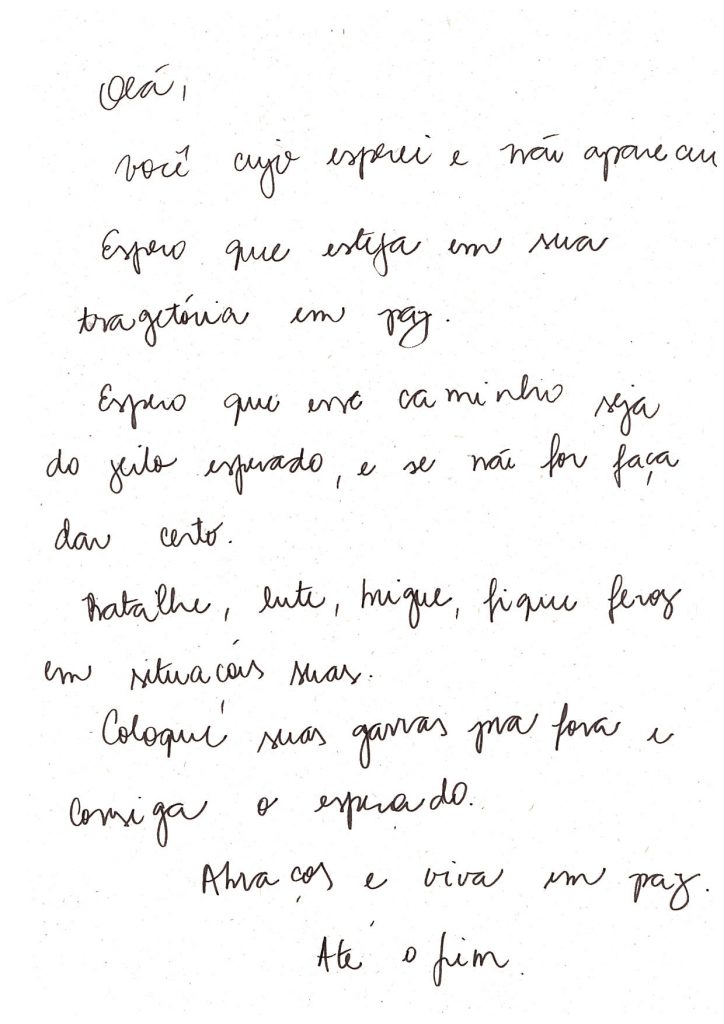 Olá,
você cujo esperei e não apareceu
Espero que esteja em sua
tragetória em paz.
Espero que esse caminho seja
do jeito esperado, e se não for faça
dar certo.
Batalhe, lute, brigue, fique feroz
em situações suas.
Coloque suas garras pra fora e
consiga o esperado.
Abraços e viva em paz.
Até o fim.